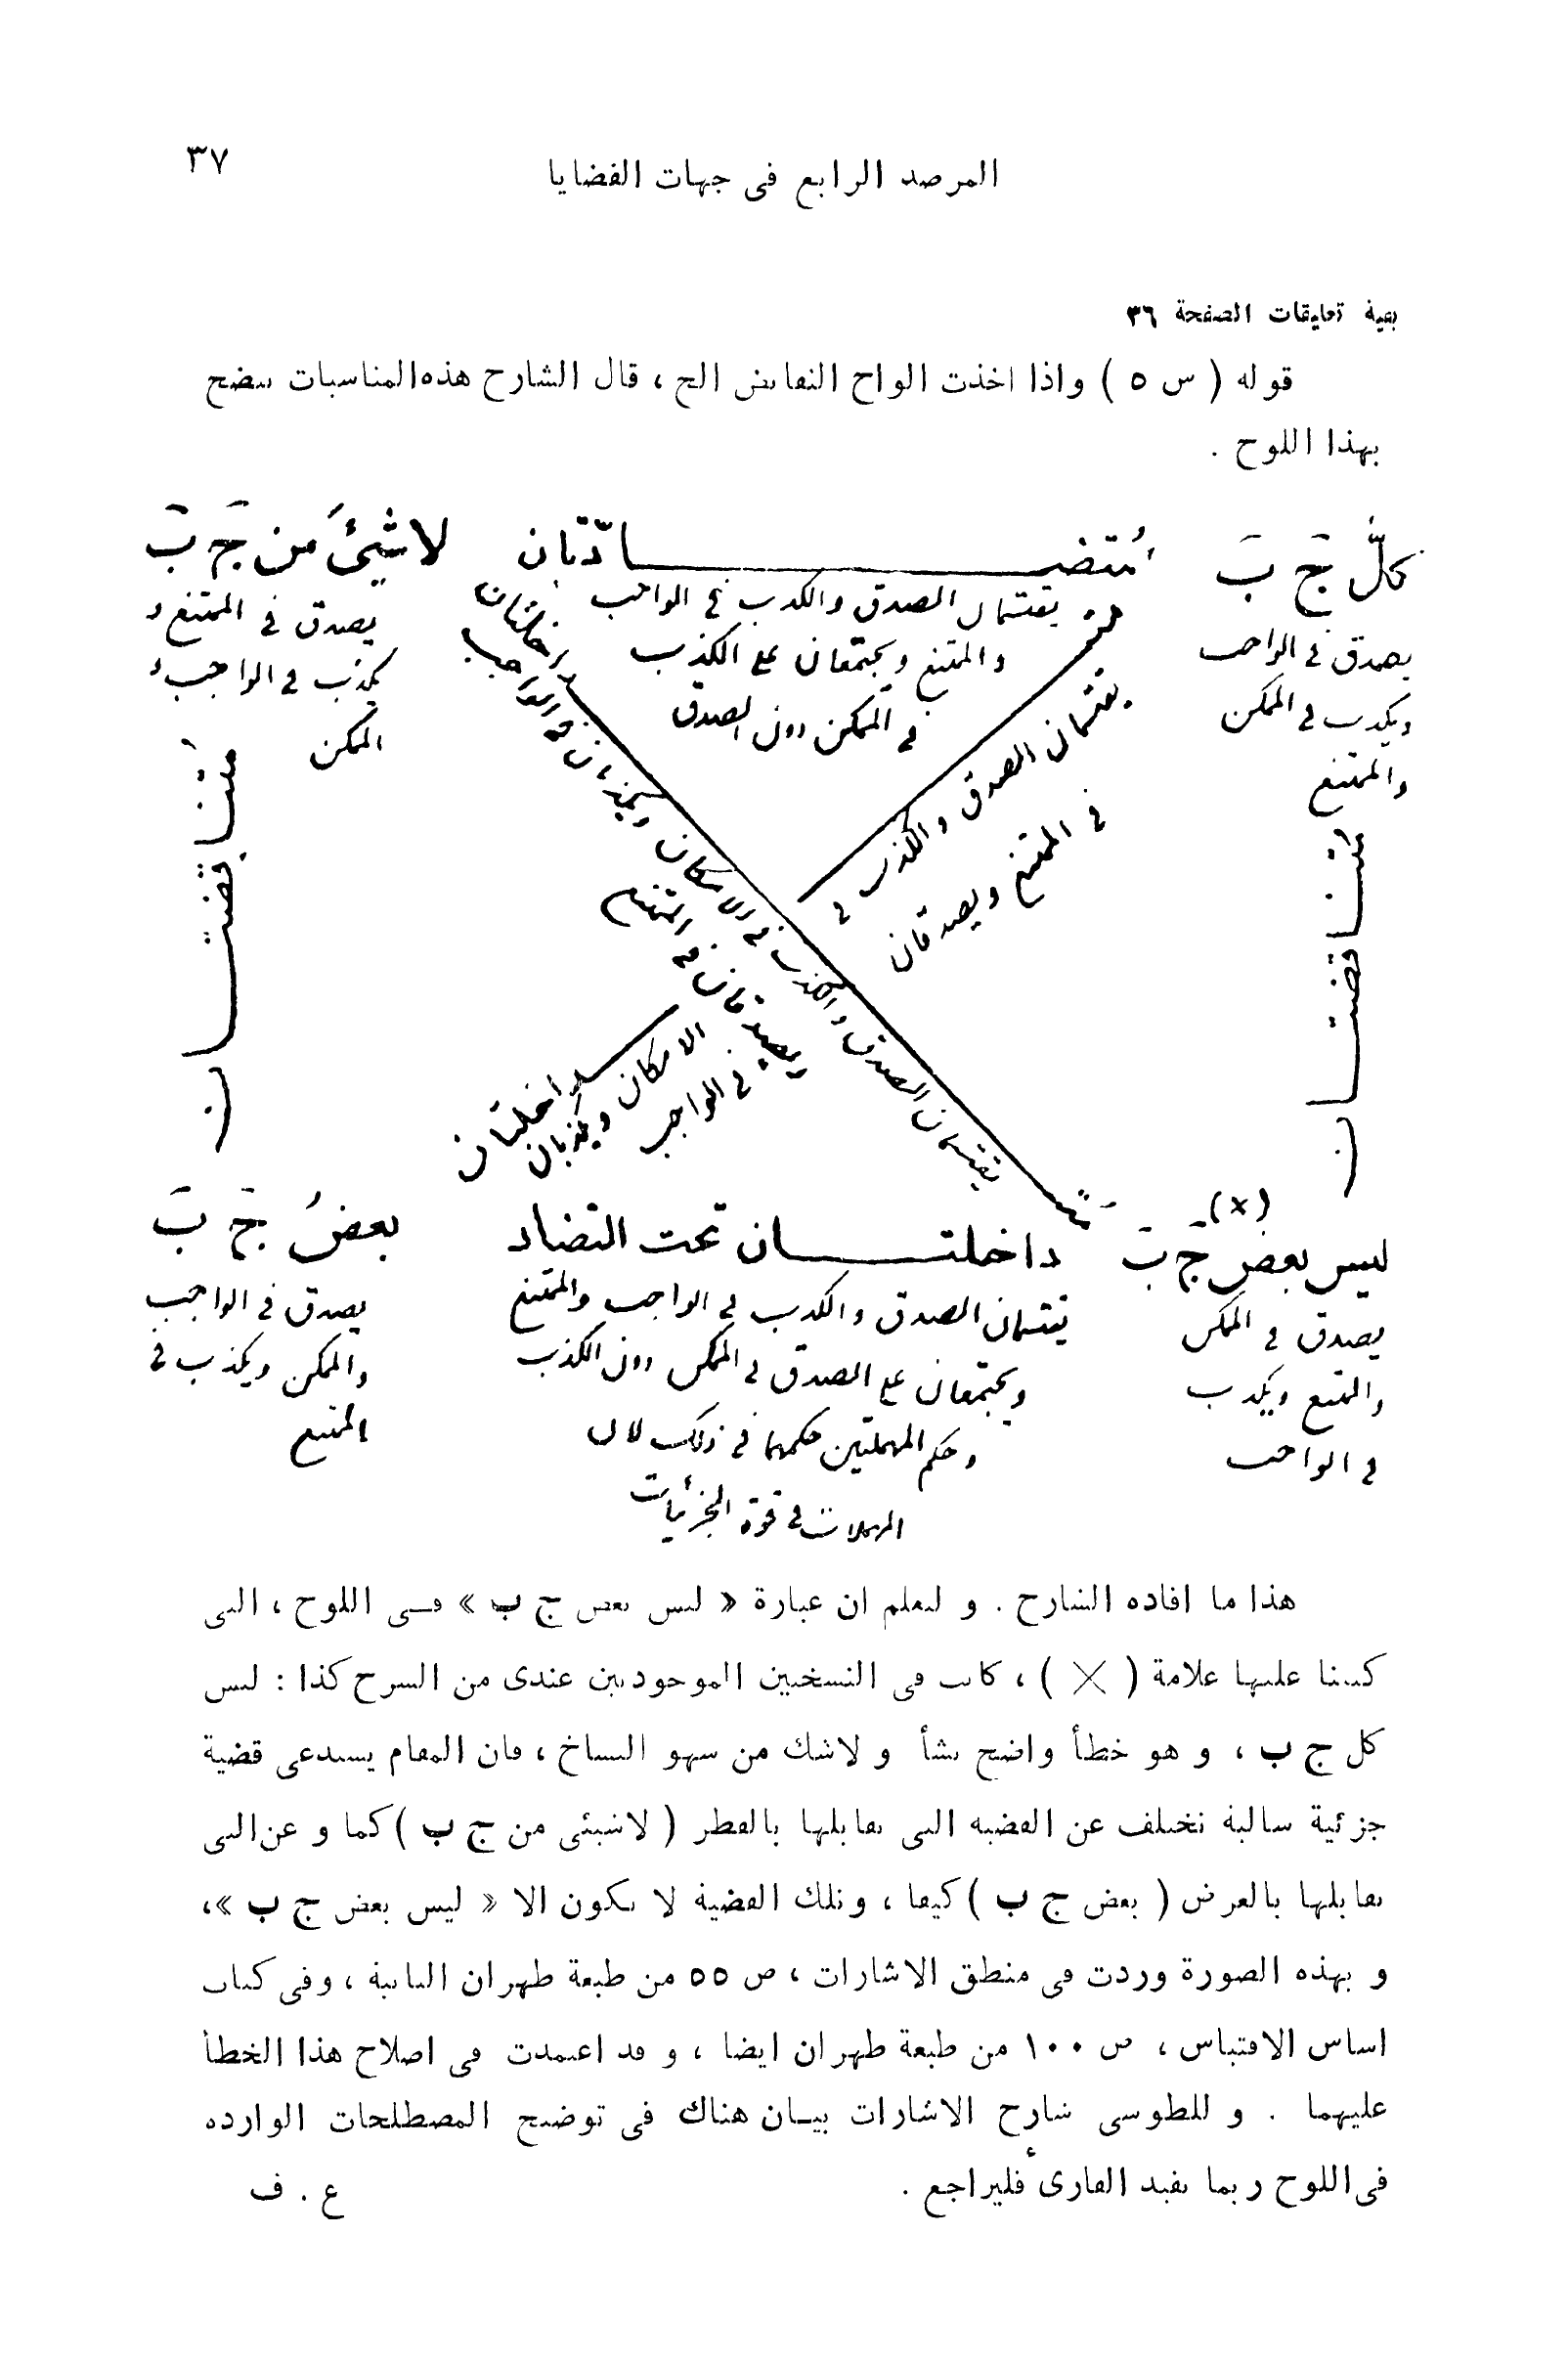 المرصد الرابع فى جهات القضايا
٣٧
بقية تعليقات الصفحة ٣٦
قوله ( س ٥ ) واذا اخذت الواح النقائض الخ ، قال الشارح هذه المناسبات تتضح
بهذا اللوح .
كلّ جَ بَ
متضادّتان
لاشيئَ من جَ بَ
يصدق في الواجب
ويكذب في الممكن
والممتنع
يقتسمان الصدق والكذب في الواجب
والممتنع ويجتمعان على الكذب
في الممكن دون الصدق
يصدق في الممتنع و
يكذب في الواجب و
الممكن
متناقضتان
متناقضتان
يقتسمان الصدق والكذب في
في الممتنع ويصدقان
يقتسمان الصدق والكذب في الامكان ويكذبان في الواجب
ويصدقان في الممتنع
متداخلتان
الامكان ويكذبان
في الواجب
(×)
ليس بعض جَ بَ
داخلتان تحت التضاد
بعضُ جَ بَ
يصدق في الممكن
والممتنع ويكذب
في الواجب
يقتسمان الصدق والكذب في الواجب والممتنع
ويجتمعان على الصدق في الممكن دون الكذب
وحكم المهملتين حكمهما في ذلك لان
المهملات في قوة الجزئيات
يصدق في الواجب
والممكن ويكذب في
الممتنع
هذا ما افاده الشارح . و ليعلم ان عبارة « ليس بعض ج ب » فى اللوح ، التى
كتبنا عليها علامة ( × ) ، كانت فى النسختين الموجودتين عندى من الشرح كذا : ليس
كل ج ب ، و هو خطأ واضح نشأ و لاشك من سهو النساخ ، فان المقام يستدعى قضية
جزئية سالبة تختلف عن القضية التى تقابلها بالقطر ( لاشيئى من ج ب ) كما و عن التى
تقابلها بالعرض ( بعض ج ب ) كيفا ، وتلك القضية لا تكون الا « ليس بعض ج ب »،
و بهذه الصورة وردت فى منطق الاشارات ، ص ٥٥ من طبعة طهران الثانية ، وفى كتاب
اساس الاقتباس ، ص ١٠٠ من طبعة طهران ايضا ، و قد اعتمدت فى اصلاح هذا الخطأ
عليهما . و للطوسى شارح الاشارات بيان هناك فى توضيح المصطلحات الوارده
فى اللوح ربما يفيد القارئ فليراجع .
ع . ف